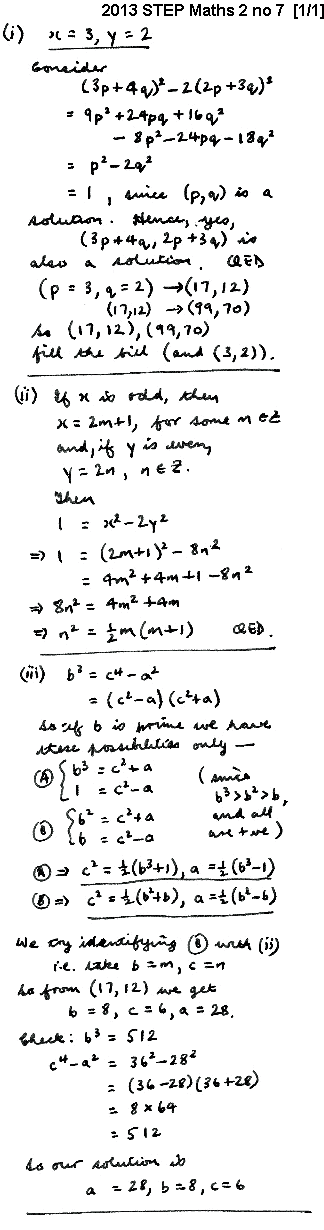 2013 STEP Maths 2 no 7 [1/1]
(i) x = 3, y = 2
Consider
(3p+4q)² – 2(2p+3q)²
= 9p² + 24pq + 16q²
– 8p² – 24pq – 18q²
= p² – 2q²
= 1, since (p,q) is a
solution. Hence, yes,
(3p+4q, 2p+3q) is
also a solution. QED
(p = 3, q = 2) → (17, 12)
(17,12) → (99, 70)
So (17, 12), (99, 70)
fill the bill (and (3,2)).
(ii) If x is odd, then
x = 2m+1, for some m ∈ Z
and, if y is even,
y = 2n, n ∈ Z.
Then
1 = x² – 2y²
⇒ 1 = (2m+1)² – 8n²
= 4m² + 4m + 1 – 8n²
⇒ 8n² = 4m² + 4m
⇒ n² = ½m(m+1) QED.
(iii) b³ = c⁴ – a²
= (c² – a)(c² + a)
So if b is prime we have
these possibilities only —
Ⓐ { b³ = c² + a (since
1 = c² – a b³ > b² > b,
Ⓑ { b² = c² + a and all
b = c² – a are +ve)
Ⓐ ⇒ c² = ½(b³+1), a = ½(b³–1)
Ⓑ ⇒ c² = ½(b²+b), a = ½(b²–b)
We try identifying Ⓑ with (ii)
i.e. take b = m, c = n
So from (17, 12) we get
b = 8, c = 6, a = 28.
Check: b³ = 512
c⁴ – a² = 36² – 28²
= (36 – 28)(36 + 28)
= 8 × 64
= 512
So our solution is
a = 28, b = 8, c = 6